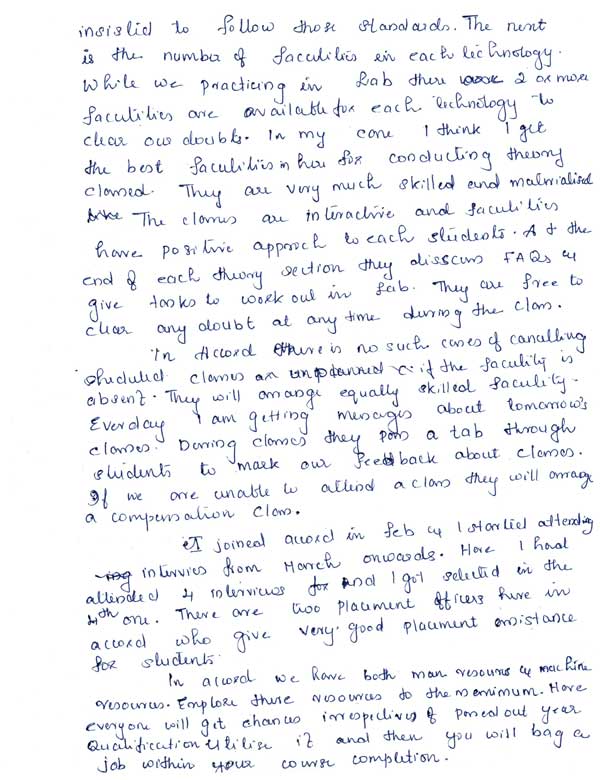 insisted to follow those standards. The next
is the number of faculities in each technology.
While we practicing in Lab there 2 or more
faculities are available for each technology to
clear our doubts. In my case I think I get
the best faculities in here for conducting theory
classed. They are very much skilled and materialised
The classes are interactive and faculities
have positive approch to each students. At the
end of each theory section they disscuss FAQs &
give tasks to work out in Lab. They are free to
clear any doubt at any time during the class.
In Accord there is no such cases of cancelling
sheduled classes an unplanned if the faculity is
absent. They will arrange equally skilled faculity.
Everyday I am getting messages about tomorrow's
classes. During classes they pass a tab through
students to mark our feedback about classes.
If we are unable to attend a class they will arrange
a compensation class.
I joined accord in feb & I started attending
intervies from March onwards. Here I had
attended 4 interviews and I got selected in the
4th one. There are two placement officers here in
accord who give very good placement assistance
for students.
In accord we have both man resourses & machine
resources. Explore these resources to the maximum. Here
everyone will get chances irrespectives of passed out year
Qualification Utilise it and then you will bag a
job within your course completion.